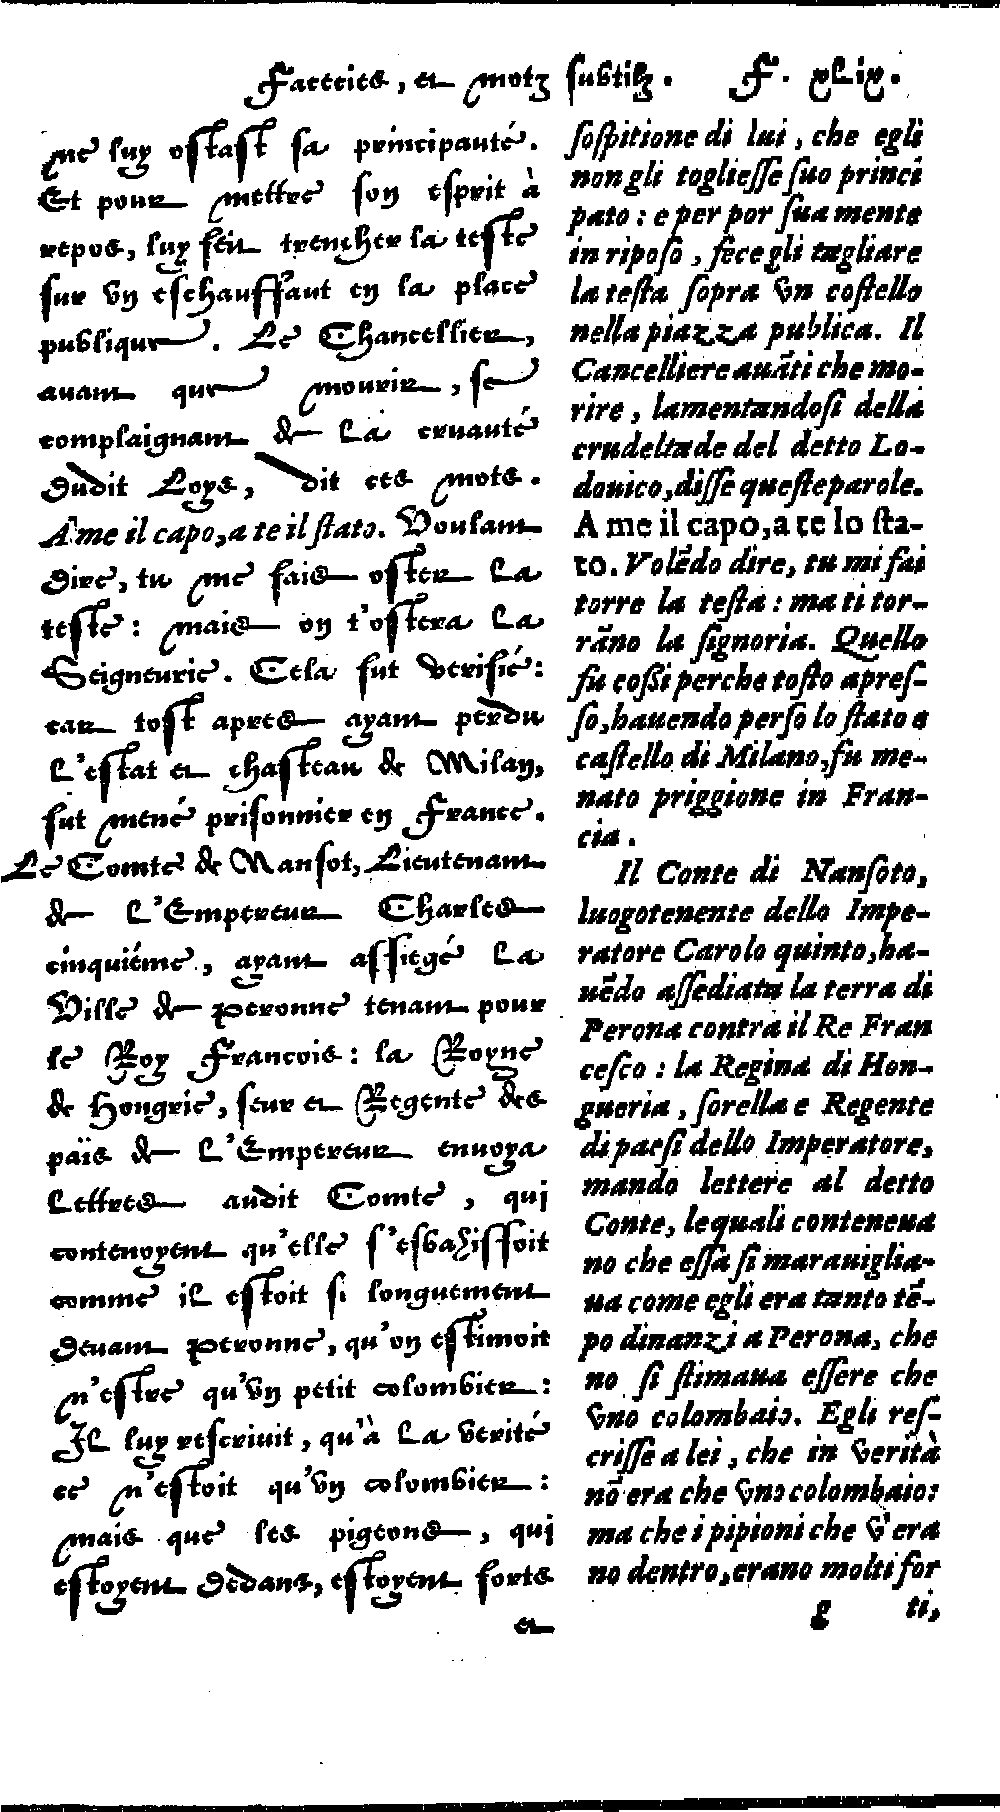 Facecies, et motz subtilz. F. xlix.
ne luy ostast sa principauté.
Et pour mettre son esprit à
repos, luy feit trencher la teste
sur vn eschauffaut en la place
publique. Le Chancellier,
auant que mourir, se
complaignant de la cruauté
dudit Loys, dit ces mots.
A me il capo, a te il stato. Voulant
dire, tu me fais oster la
teste: mais on t'ostera la
Seigneurie. Cela fut verifié:
car tost apres ayant perdu
l'estat et chasteau de Milan,
fut mené prisonnier en France.
Le Comte de Nansot, Lieutenant
de l'Empereur Charles
cinquiéme, ayant assiegé la
Ville de Peronne tenant pour
le Roy Francois: la Royne
de Hongrie, seur et Regente des
païs de l'Empereur enuoya
Lettres audit Comte, qui
contenoyent qu'elle s'esbahissoit
comme il estoit si longuement
deuant Peronne, qu'on estimoit
n'estre qu'vn petit colombier:
Il luy rescriuit, qu'à la verité
ce n'estoit qu'vn colombier:
mais que les pigeons, qui
estoyent dedans, estoyent forts
et
sospitione di lui, che egli
non gli togliesse suo princi
pato: e per por sua mente
in riposo, fece gli tagliare
la testa sopra vn costello
nella piazza publica. Il
Cancelliere auāti che mo-
rire, lamentandosi della
crudeltade del detto Lo-
douico, disse queste parole.
A me il capo, a te lo sta-
to. Volēdo dire, tu mi fai
torre la testa: ma ti tor-
rāno la signoria. Quello
fu cossi perche tosto apres-
so, hauendo perso lo stato e
castello di Milano, fu me-
nato priggione in Fran-
cia.
Il Conte di Nansoto,
luogotenente dello Impe-
ratore Carolo quinto, ha-
uēdo assediata la terra di
Perona contra il Re Fran
cesco: la Regina di Hon-
gueria, sorella e Regente
di paesi dello Imperatore,
mando lettere al detto
Conte, lequali conteneua
no che essa si marauiglia-
ua come egli era tanto tē-
po dinanzi a Perona, che
no si stimaua essere che
vno colombaio. Egli res-
crisse a lei, che in verità
nō era che vno colombaio:
ma che i pipioni che v'era
no dentro, erano molti for
g ti,